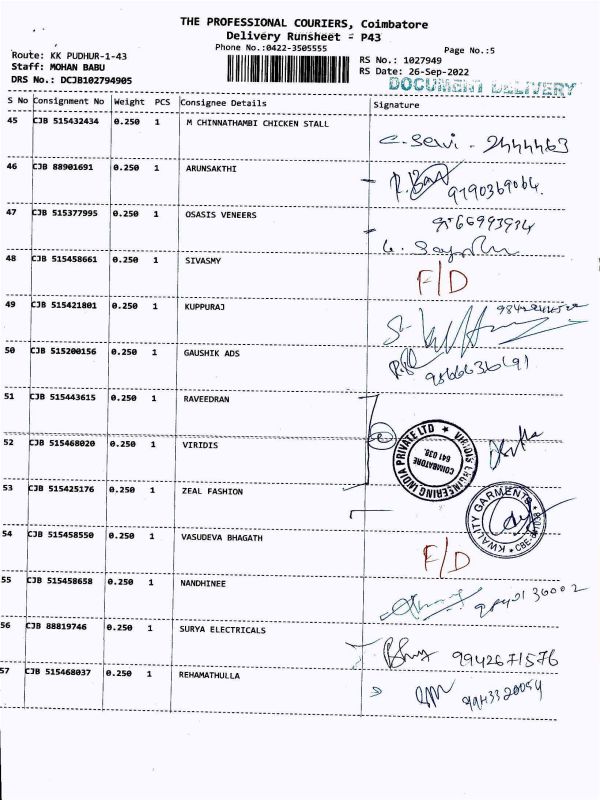 THE PROFESSIONAL COURIERS, Coimbatore
Delivery Runsheet - P43
Phone No.:0422-3505555
Page No.:5
Route: KK PUDHUR-1-43
RS No.: 1027949
Staff: MOHAN BABU
RS Date: 26-Sep-2022
DRS No.: DCJB102794905
DOCUMENT DELIVERY
S No Consignment No Weight PCS Consignee Details Signature
45 CJB 515432434 0.250 1 M CHINNATHAMBI CHICKEN STALL
46 CJB 88901691 0.250 1 ARUNSAKTHI
9190369064.
47 CJB 515377995 0.250 1 OSASIS VENEERS
9566993934
48 CJB 515458661 0.250 1 SIVASMY F/D
49 CJB 515421801 0.250 1 KUPPURAJ
50 CJB 515200156 0.250 1 GAUSHIK ADS
51 CJB 515443615 0.250 1 RAVEEDRAN
52 CJB 515468020 0.250 1 VIRIDIS
VIRIDIS ENGINEERING INDIA PRIVATE LTD
COIMBATORE
641 038.
53 CJB 515425176 0.250 1 ZEAL FASHION
KWALITY GARMENTS
54 CJB 515458550 0.250 1 VASUDEVA BHAGATH F/D
55 CJB 515458658 0.250 1 NANDHINEE
56 CJB 88819746 0.250 1 SURYA ELECTRICALS
9942671576
57 CJB 515468037 0.250 1 REHAMATHULLA
9943320054